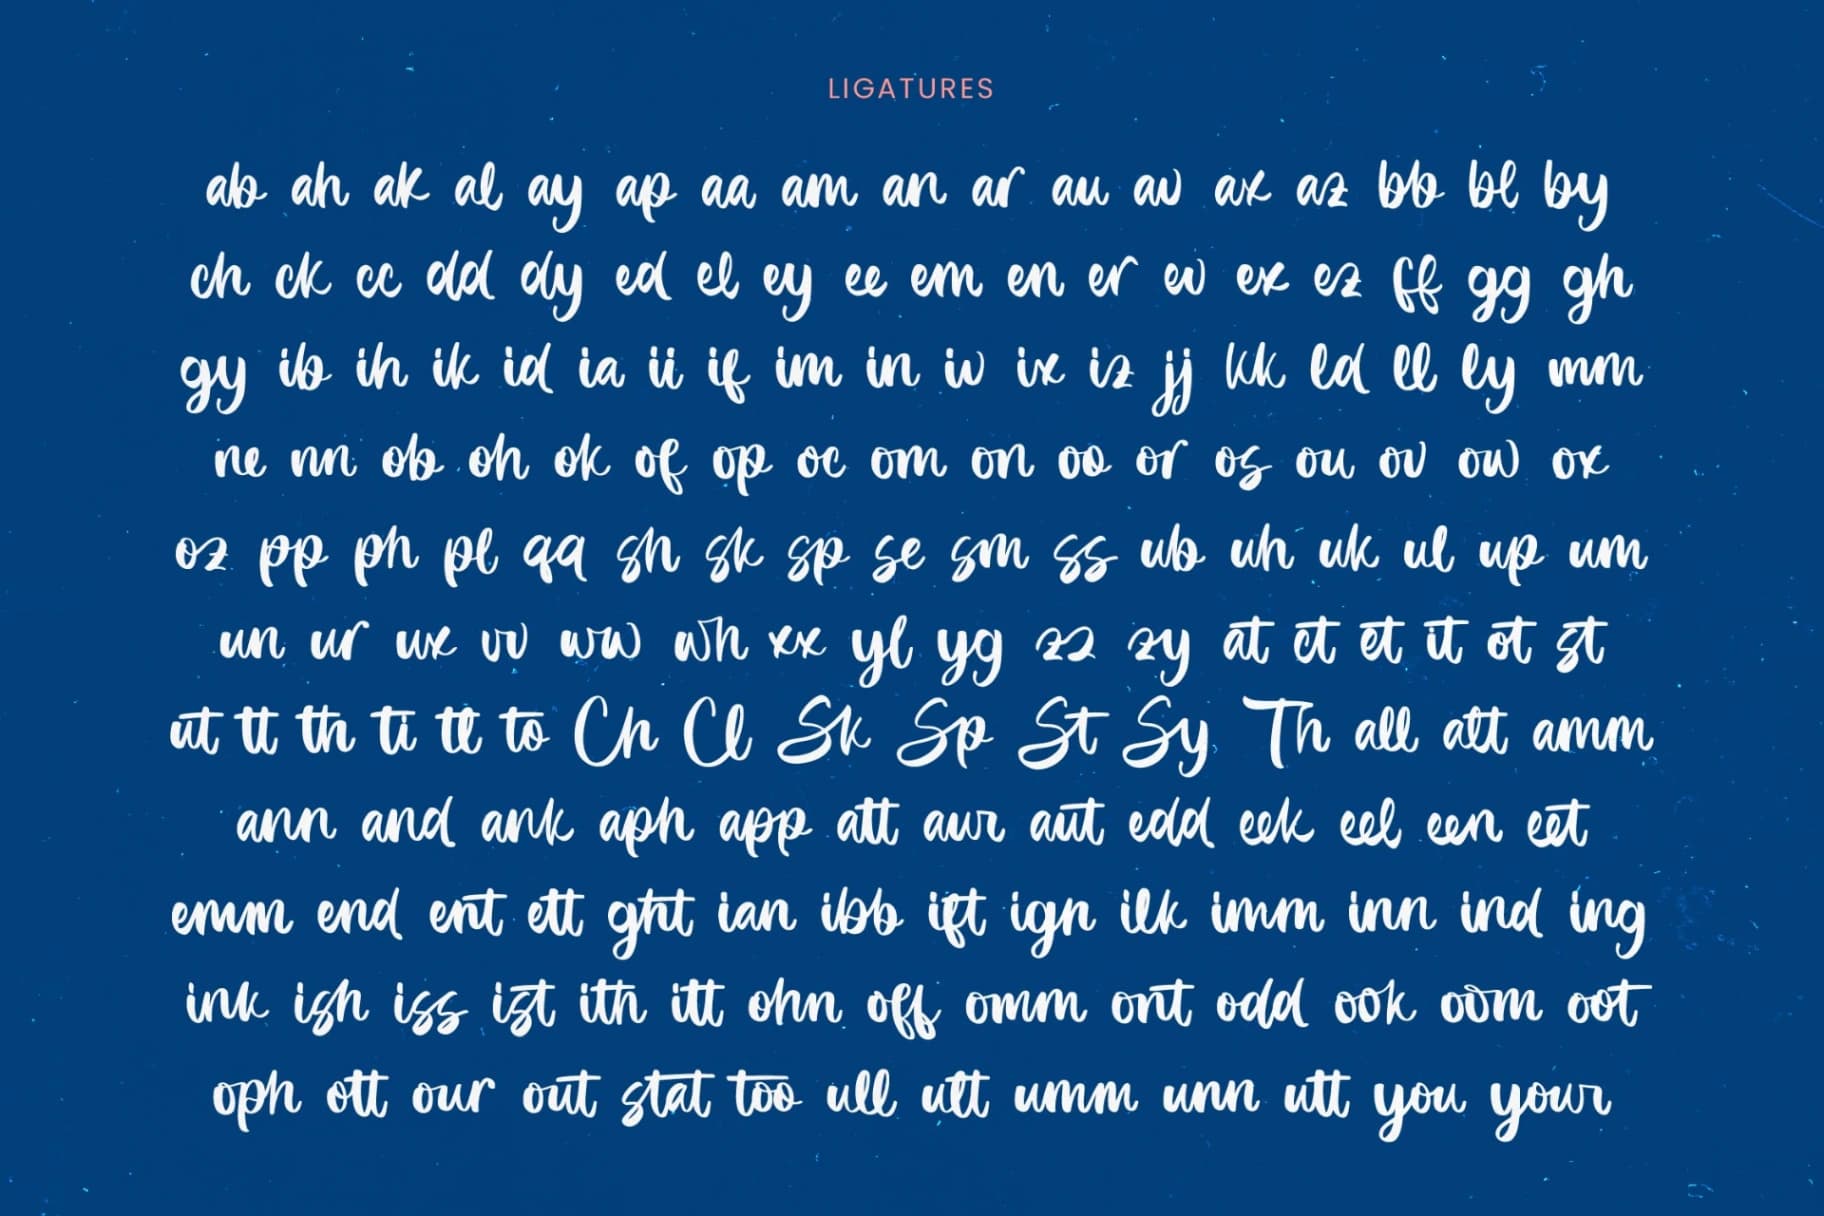 LIGATURES
ab ah ak al ay ap aa am an ar au av ax az bb bl by
ch ck cc dd dy ed el ey ee em en er ev ex ez ff gg gh
gy ib ih ik id ia ii if im in iv ix iz jj kk ld ll ly mm
ne nn ob oh ok of op oc om on oo or os ou ov ow ox
oz pp ph pl qq sh sk sp se sm ss ub uh uk ul up um
un ur ux vv ww wh xx yl yg zz zy at ct et it ot st
ut tt th ti tl to Ch Cl Sk Sp St Sy Th all alt amm
ann and ank aph app att aur aut edd eek eel een eet
emm end ent ett ght ian ibb ift ign ilk imm inn ind ing
ink ish iss ist ith itt ohn off omm ont odd ook oom oot
oph ott our out stat too ull ult umm unn utt you your